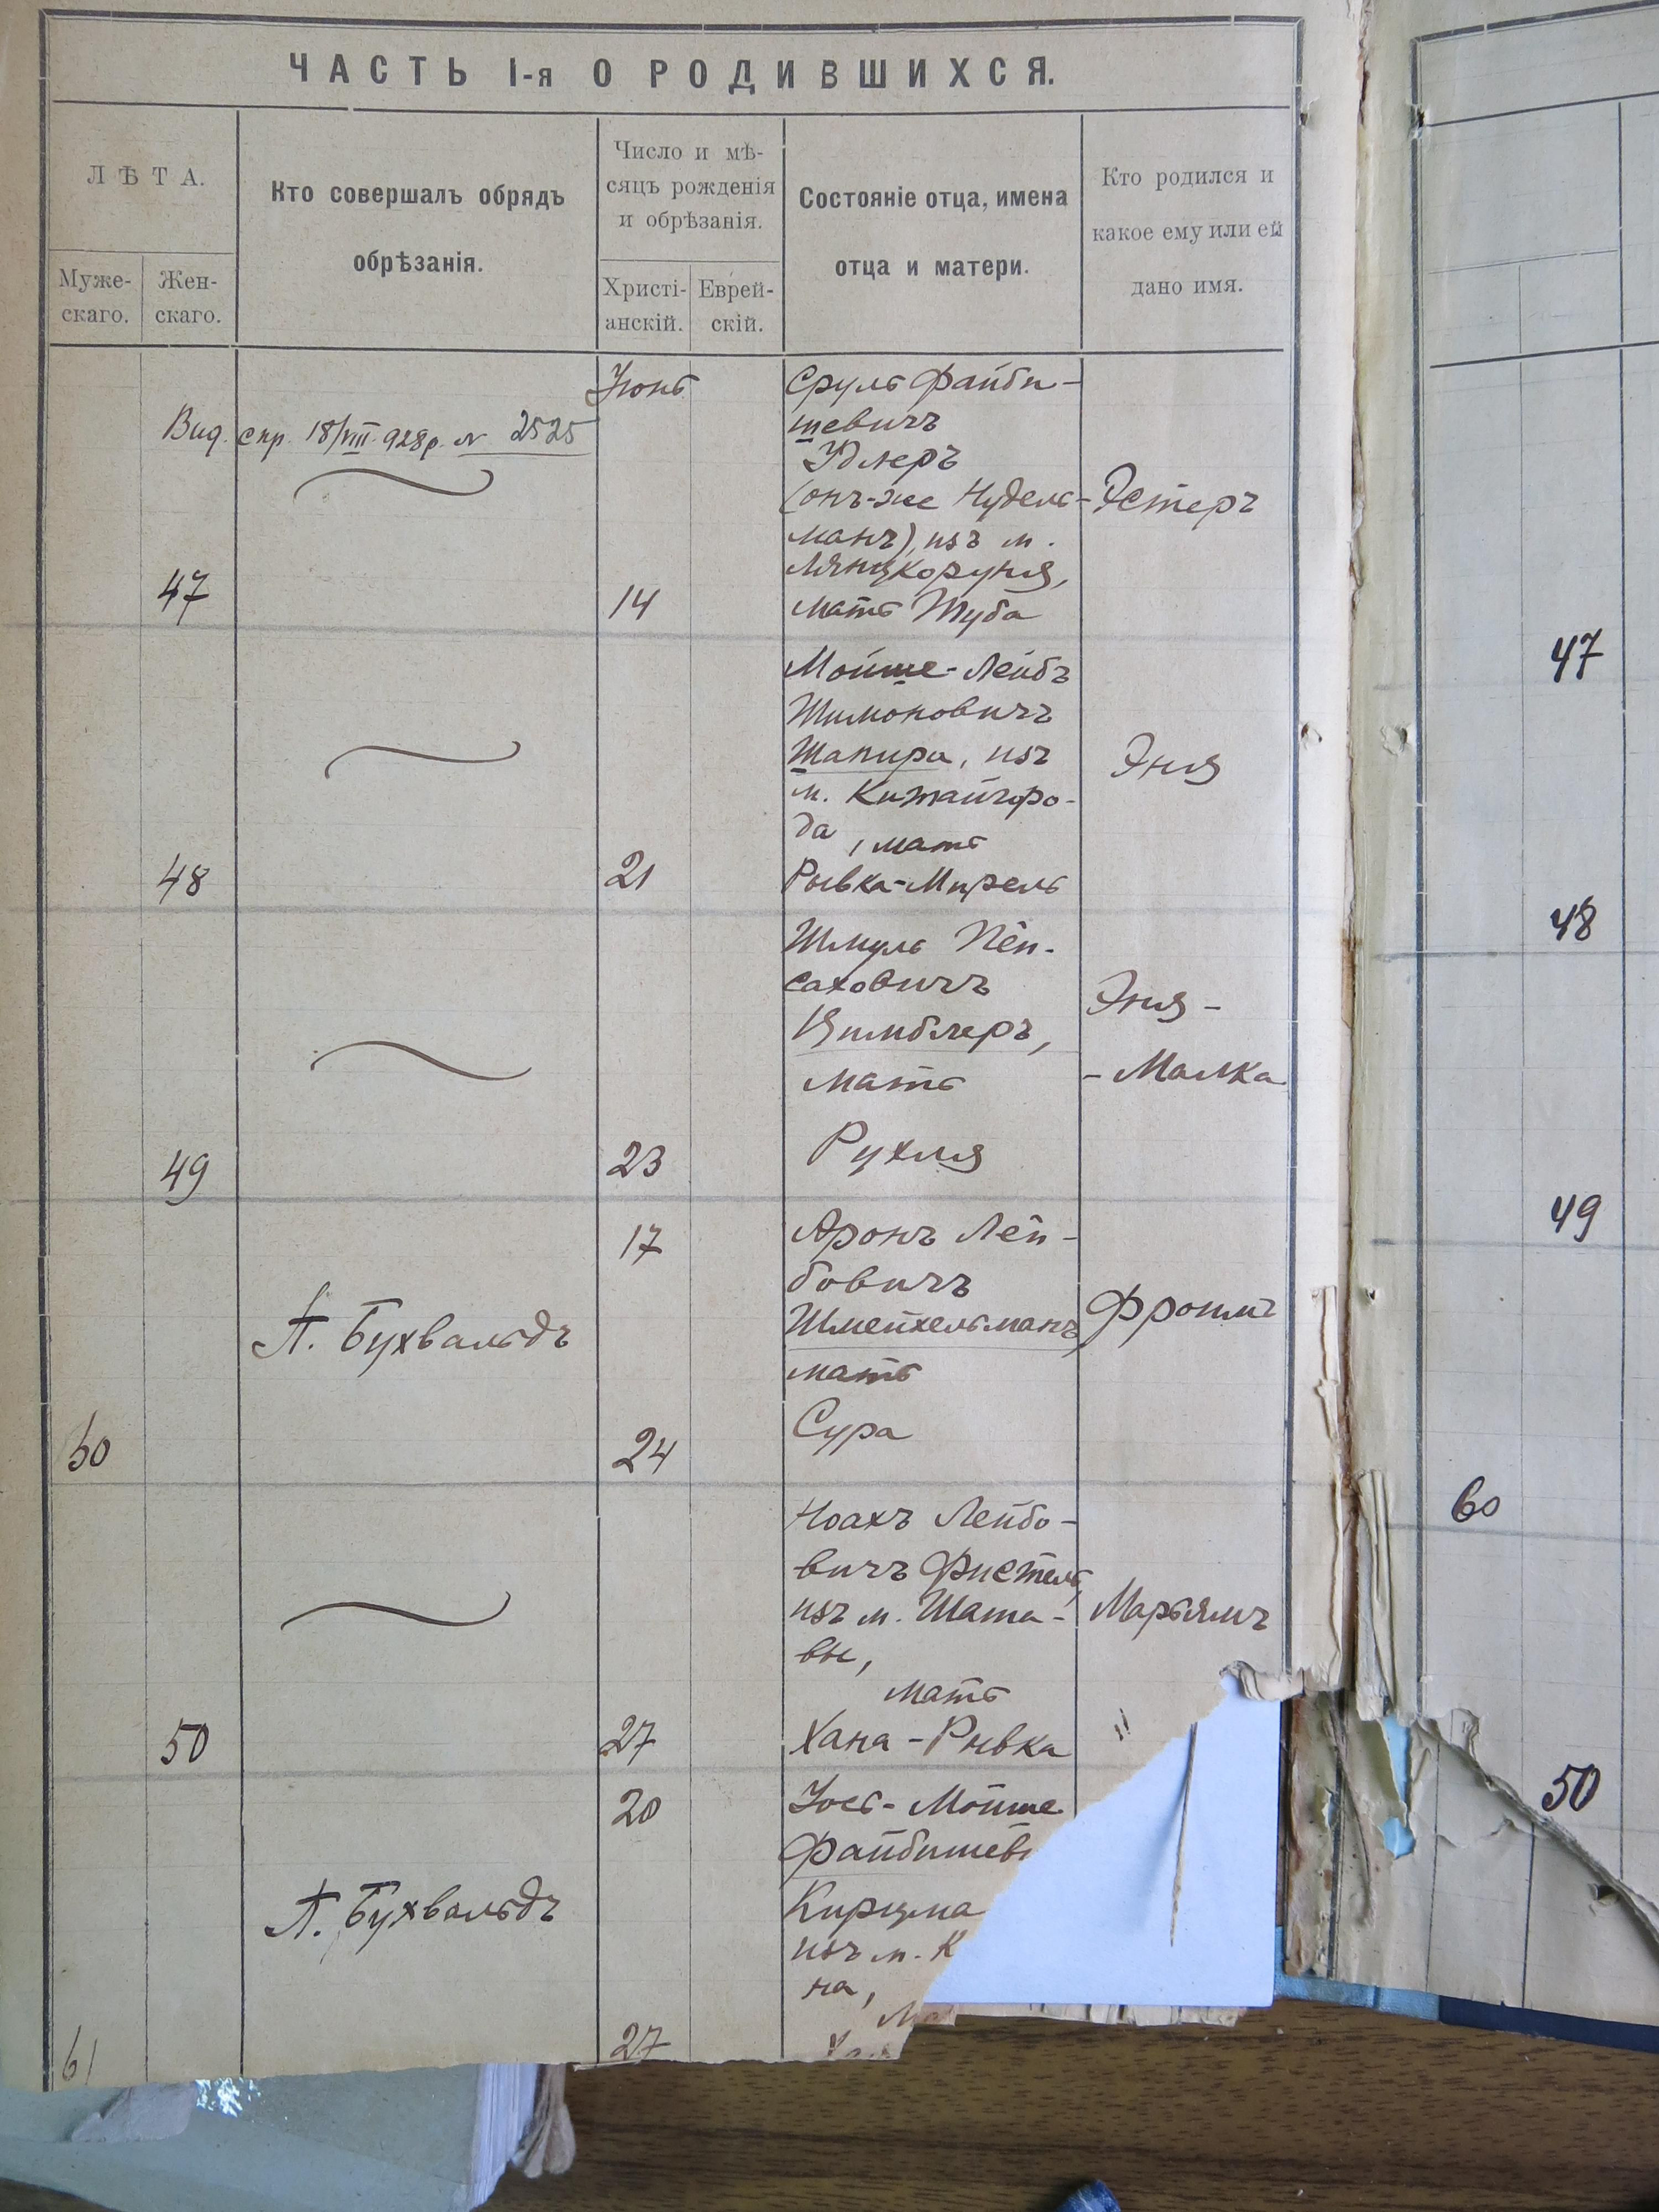 ЧАСТЬ I-я О РОДИВШИХСЯ.
ЛѢТА.
Муже-
скаго.
Жен-
скаго.
Кто совершалъ обрядъ
обрѣзанія.
Число и мѣ-
сяцъ рожденія
и обрѣзанія.
Христі-
анскій.
Еврей-
скій.
Состояніе отца, имена
отца и матери.
Кто родился и
какое ему или ей
дано имя.
Вид. спр. 18/VIII 928 р. N 2525
Июнь
Сруль Файби-
шевичъ
Удлеръ
(онъ-же Нудель-
манъ), изъ м.
Лянцкоруня,
мать Туба
Эстеръ
47
14
Мойше-Лейбъ
Шимоновичъ
Шапира, изъ
м. Китайгоро-
да, мать
Рывка-Мирель
Эня
48
21
Шмуль Пей-
саховичъ
Цимблеръ,
мать
Рухля
Эня-
-Малка
49
23
17
Аронъ Лей-
бовичъ
Шмейхельманъ,
мать
Сура
А. Бухвальдъ
Фроимъ
60
24
Ноахъ Лейбо-
вичъ Фистель,
изъ м. Шата-
вы,
мать
Хана-Рывка
Марьямъ
50
27
20
Иось-Мойше
Файбишеви
Кирцма
изъ м. К
на,
А. Бухвальдъ
61
27
47
48
49
60
50